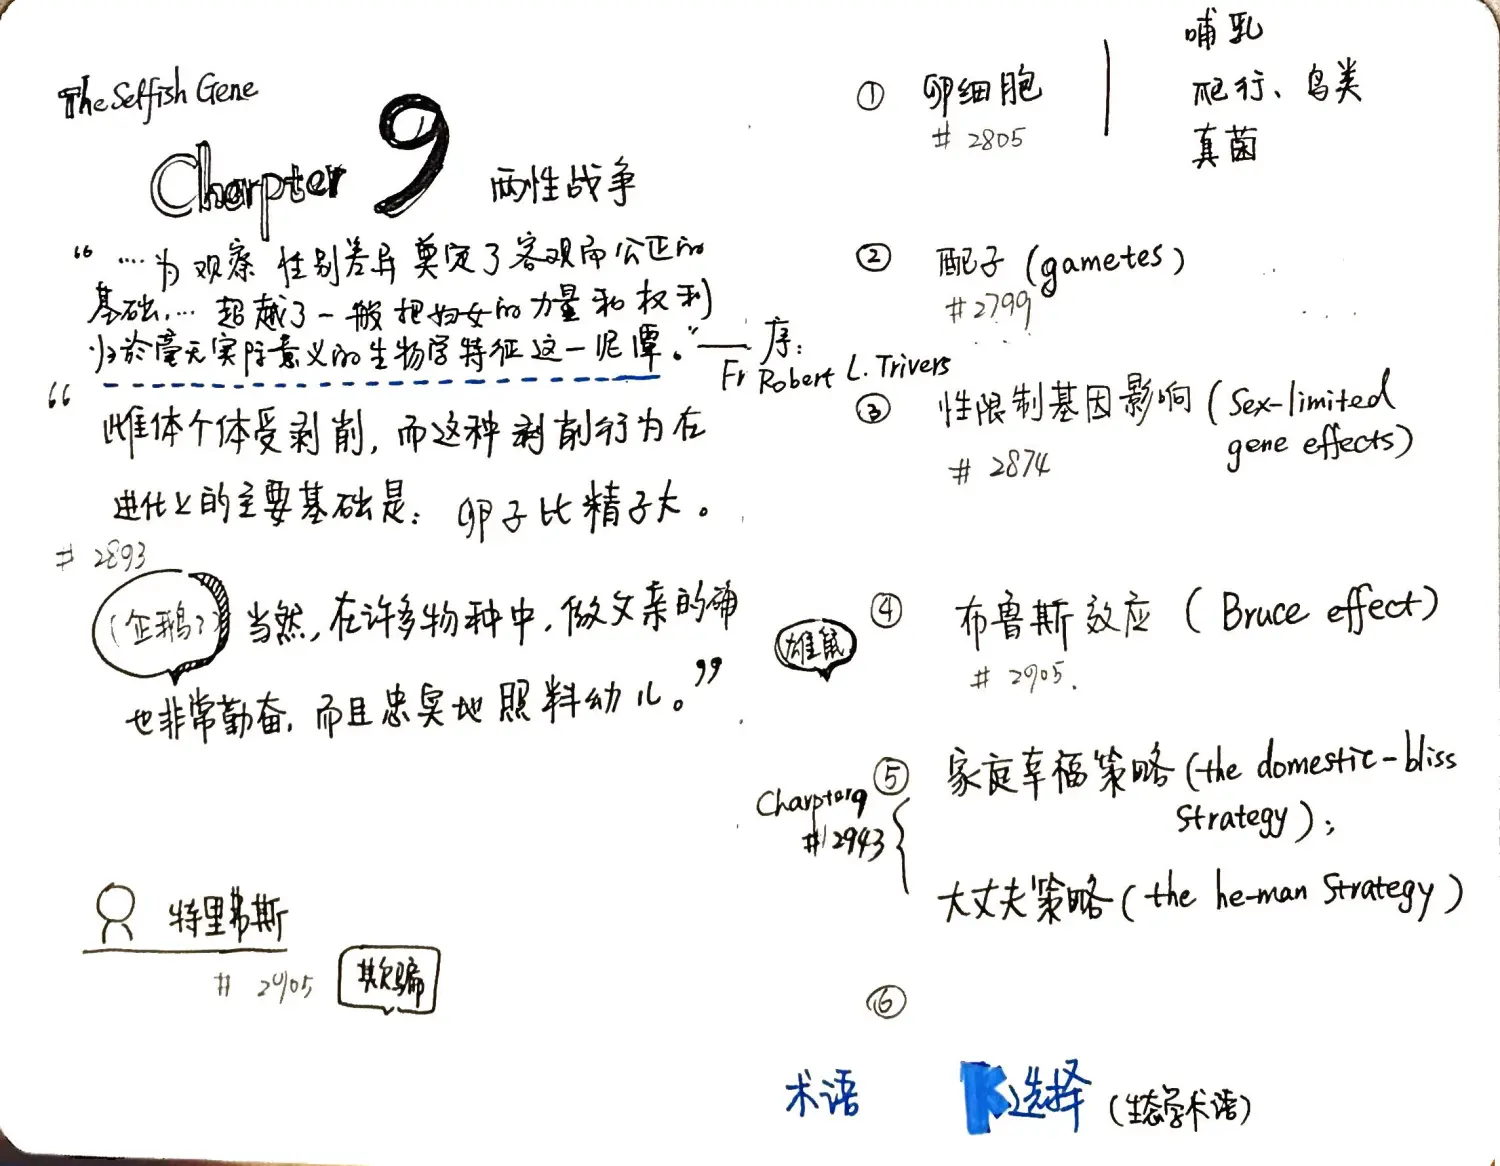 The Selfish Gene
Charpter 9 两性战争
“....为观察性别差异奠定了客观而公正的
基础.... 超越了一般把妇女的力量和权利
归於毫无实际意义的生物学特征这一泥潭。”——序:
Fr Robert L. Trivers
“雌体个体受剥削,而这种剥削行为在
进化上的主要基础是: 卵子比精子大。
# 2893
(企鹅?) 当然,在许多物种中,做父亲的确
也非常勤奋,而且忠实地照料幼儿。”
特里弗斯
# 2905 欺骗
① 卵细胞
# 2805
哺乳
爬行、鸟类
真菌
② 配子(gametes)
#2799
③ 性限制基因影响(Sex-limited
gene effects)
# 2874
④ 布鲁斯效应 (Bruce effect)
雄鼠
# 2905.
⑤ 家庭幸福策略(the domestic-bliss
strategy);
Charpter9
#2943
大丈夫策略(the he-man Strategy)
⑥
术语 K选择(生态学术语)